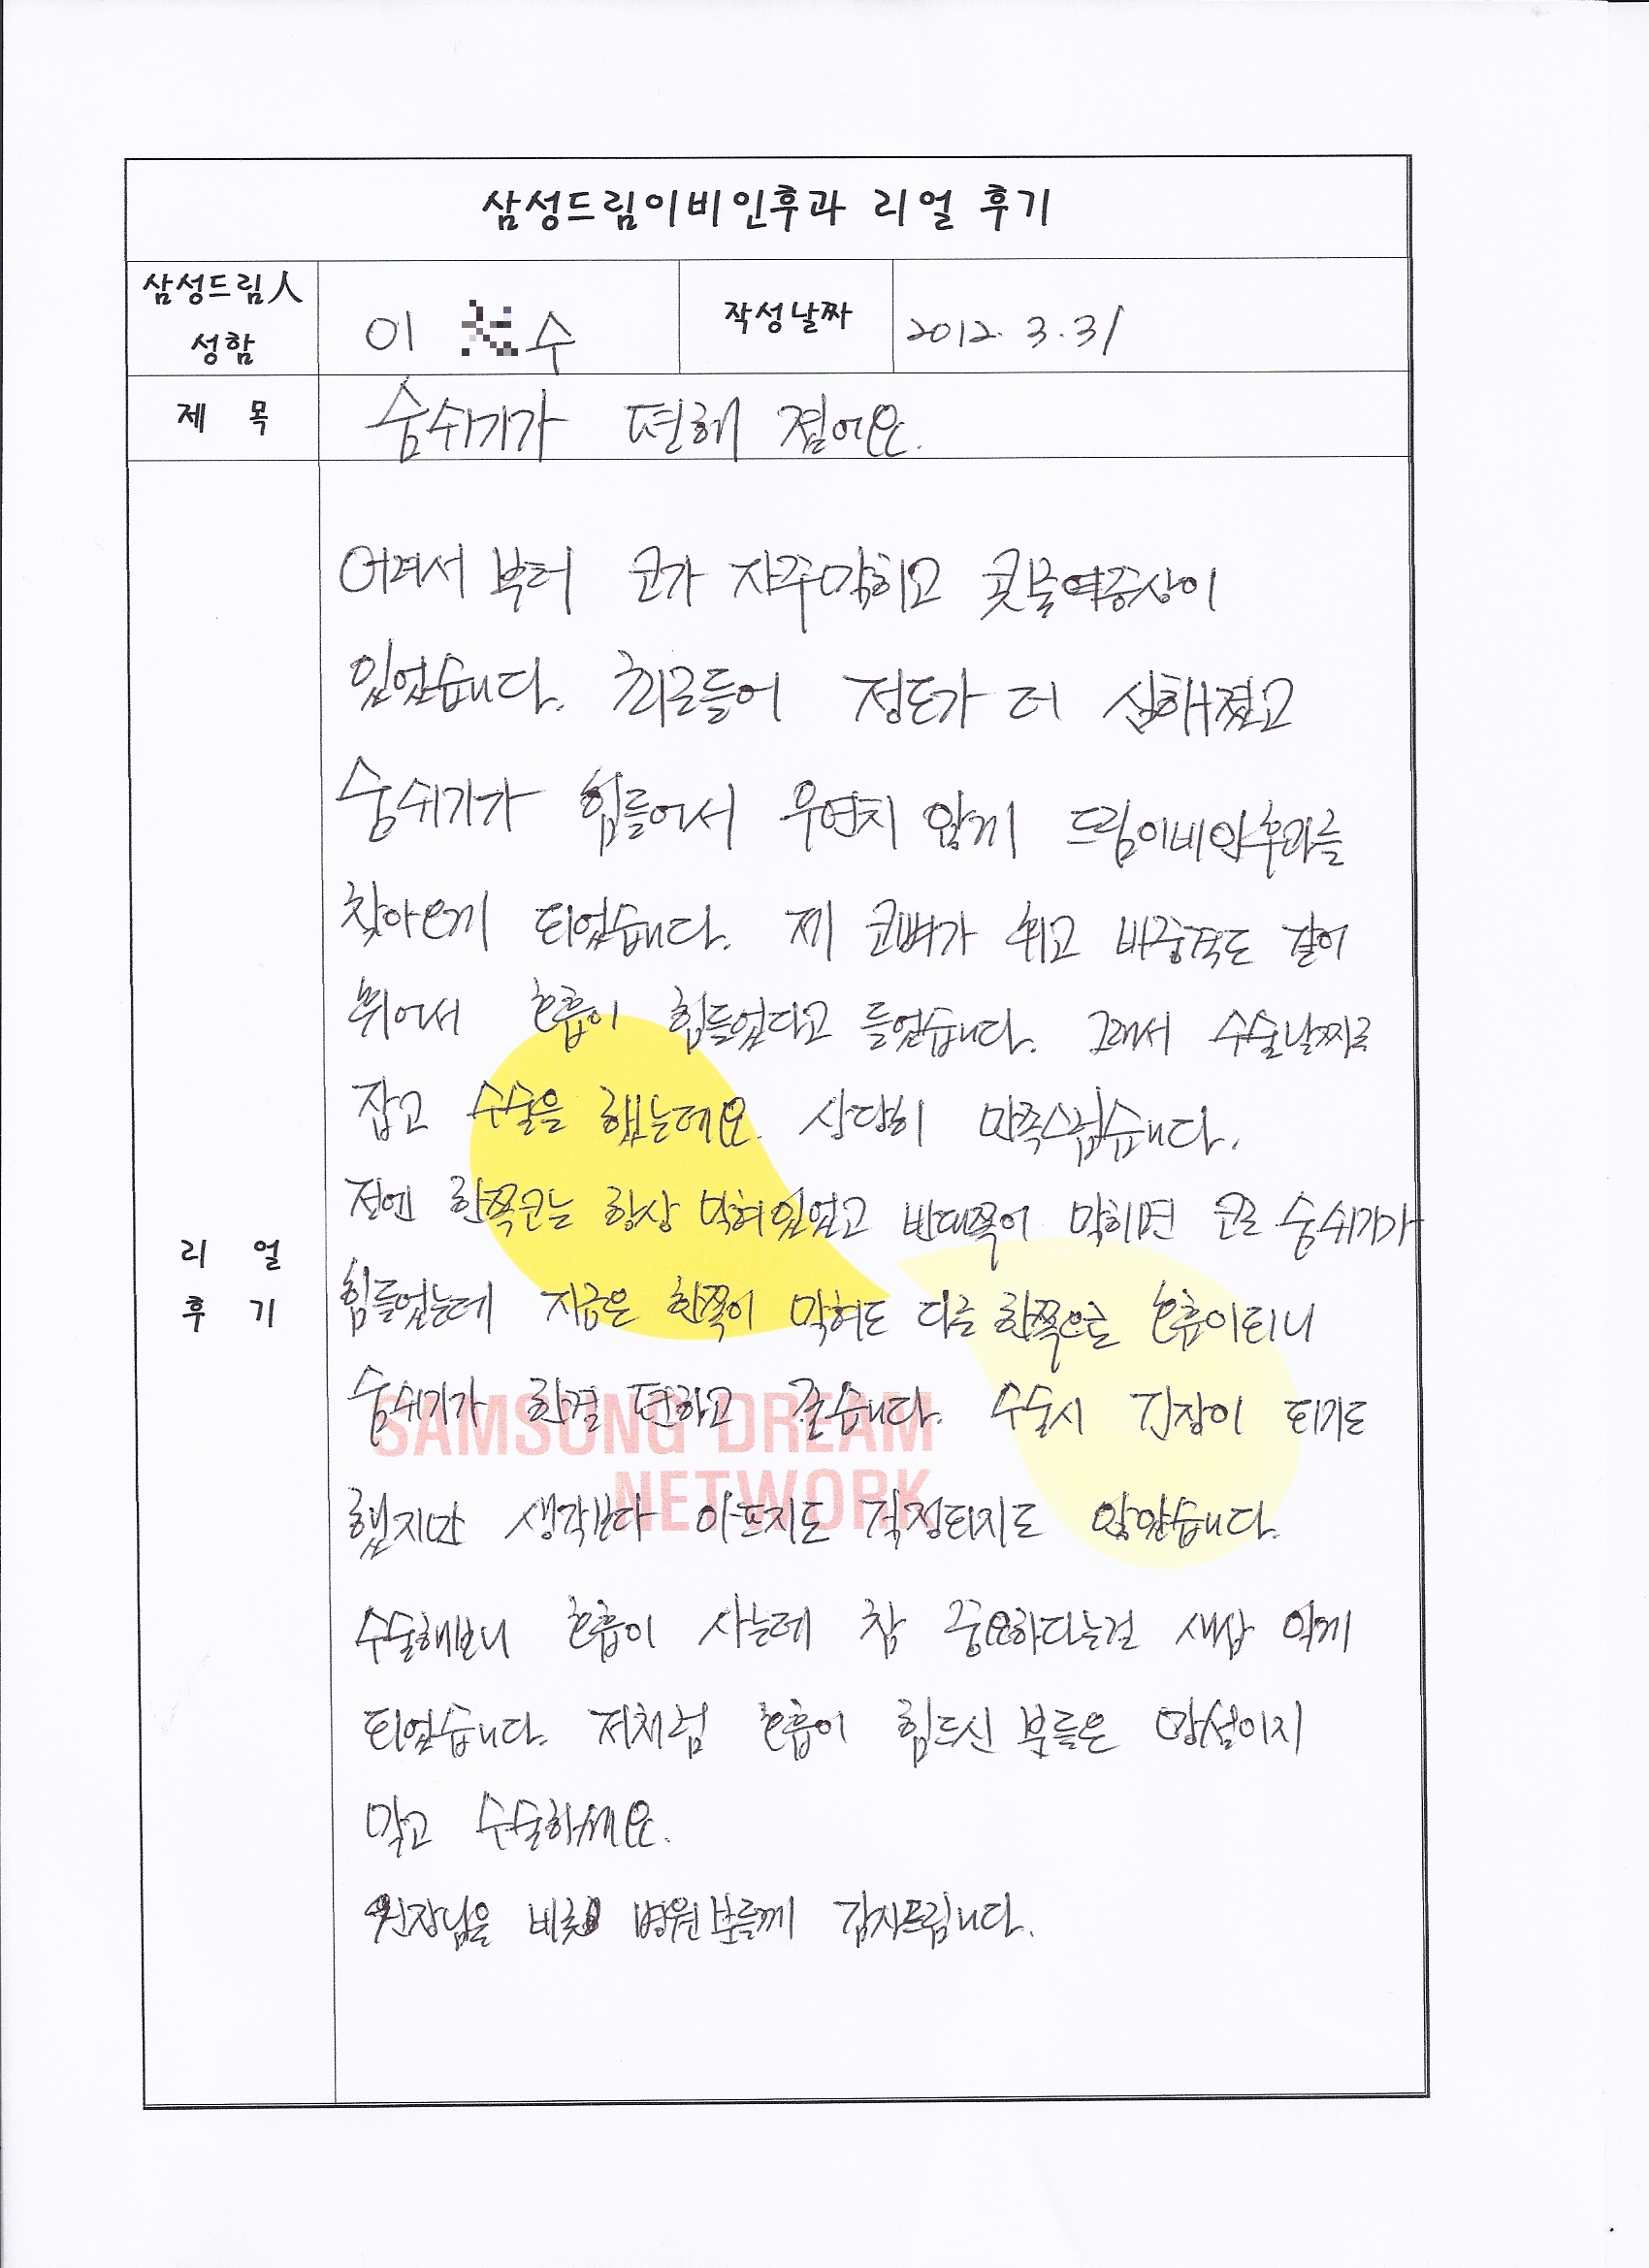 삼성드림이비인후과 리얼 후기
삼성드림人 성함
이 수
작성날짜
2012. 3. 31
제 목
숨쉬기가 편해 졌어요.
리 얼 후 기
어려서 부터 코가 자주막히고 콧물여증상이
있었습니다. 최근들어 정도가 더 심해졌고
숨쉬기가 힘들어서 우연지 않게 드림이비인후과를
찾아오게 되었습니다. 제 코뼈가 휘고 비중격도 같이
휘어서 호흡이 힘들었다고 들었습니다. 그래서 수술날짜를
잡고 수술을 했는데요. 상당히 만족스럽습니다.
전엔 한쪽코는 항상 막혀있었고 반대쪽이 막히면 코로 숨쉬기가
힘들었는데 지금은 한쪽이 막혀도 다른 한쪽으로 호흡이되니
숨쉬기가 한결 편하고 좋습니다. 수술시 긴장이 되기도
했지만 생각보다 아프지도 걱정되지도 않았습니다.
수술해보니 호흡이 사는데 참 중요하다는걸 새삼 알게
되었습니다. 저처럼 호흡이 힘드신 분들은 망설이지
말고 수술하세요.
원장님을 비롯 병원분들께 감사드립니다.
SAMSUNG DREAM
NETWORK